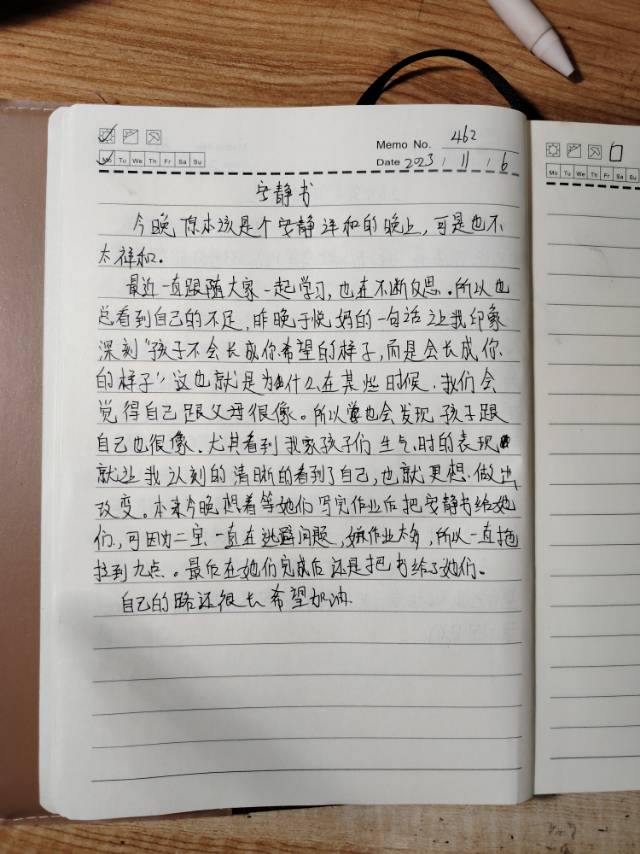 Memo No. 462
Mo Tu We Th Fr Sa Su
Date 2023 / 11 / 6
安静书
今晚原本该是个安静详和的晚上,可是也不
太祥和。
最近一直跟随大家一起学习,也在不断反思。所以也
总看到自己的不足,昨晚于悦妈的一句话让我印象
深刻"孩子不会长成你希望的样子,而是会长成你
的样子"这也就是为什么在某些时候,我们会
觉得自己跟父母很像。所以也会发现孩子跟
自己也很像。尤其看到我家孩子们生气时的表现
就让我认刻的清晰的看到了自己,也就更想做出
改变。本来今晚想着等她们写完作业后把安静书给她
们,可因为二宝一直在逃避问题,嫌作业太多,所以一直拖
拉到九点。最后在她们完成后还是把书给了她们。
自己的路还很长希望加油
Mo Tu We Th Fr Sa Su